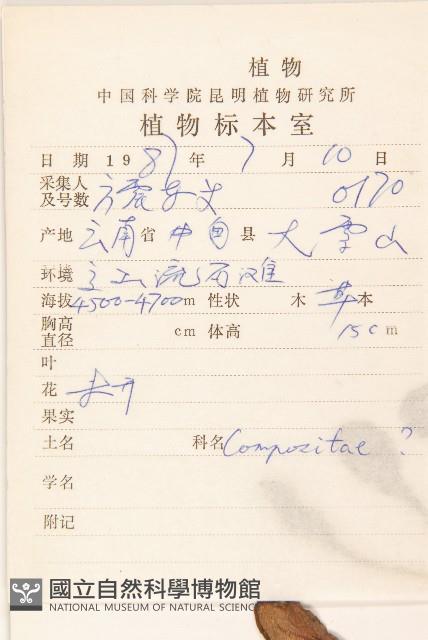 植物
中国科学院昆明植物研究所
植物标本室
日 期 1987年 7 月 10 日
采集人
及号数 0170
产地 云南省 中甸县 大雪山
环境 流石滩
海拔 4500-4700m 性状 木 草本
胸高
直径 cm 体高 15cm
叶
花 未开
果实
土名 科名 Compositae ?
学名
附记
國立自然科學博物館
NATIONAL MUSEUM OF NATURAL SCIENC